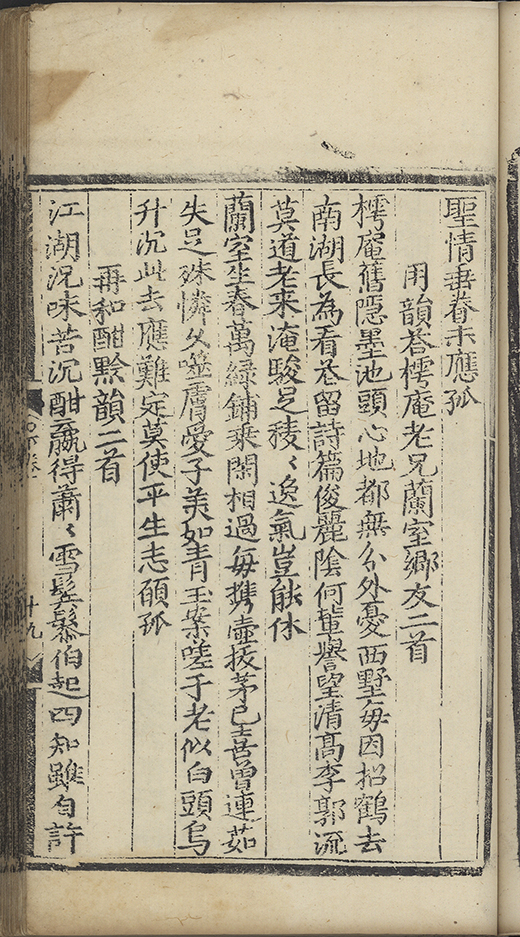 聖情垂眷未應孤
用韻答樗庵老兄蘭室鄉友二首
樗庵舊隱墨池頭心地都無分外憂西墅每因招鶴去
南湖長為看花留詩篇俊麗陰何輩譽望清髙李郭流
莫道老来淹駿足稜〻逸氣豈能休
蘭室生春萬綠鋪乘閑相過每携壺拔茅已喜曽連茹
失足殊憐久噬膚愛子美如青玉案嗟予老似白頭烏
升沉此去應難定莫使平生志願孤
再和酣黙韻二首
江湖况味苦沉酣贏得蕭〻雪鬂鬖伯起四知雖自許
十九